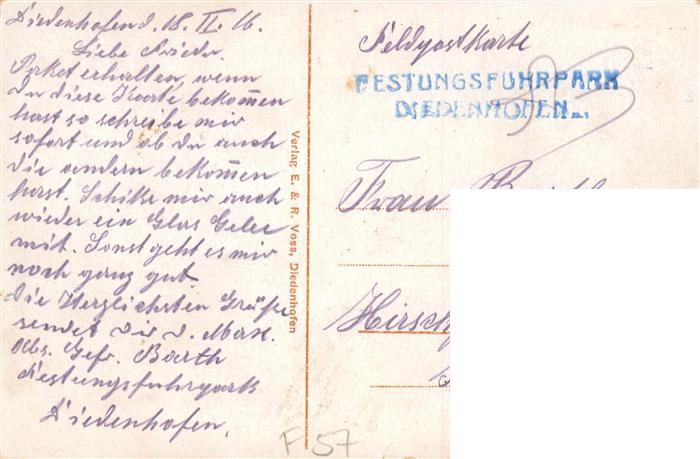 Diedenhofen d. 18. II. 16.
Liebe Frieda.
Paket erhalten, wenn
du diese Karte bekom̄en
hast so schreibe mir
sofort und ob du auch
die andern bekom̄en
hast. Schike mir auch
wieder ein Glas Gelee
mit. Sonst geht es mir
noch ganz gut.
Die Herzlichsten Grüße
sendet dir d. Max.
Abs. Gefr. Barth
Festungsfuhrpark
Diedenhofen.
Verlag E. & R. Voss, Diedenhofen
Feldpostkarte
FESTUNGSFUHRPARK
DIEDENHOFEN
Frau
Hirsch
F 57